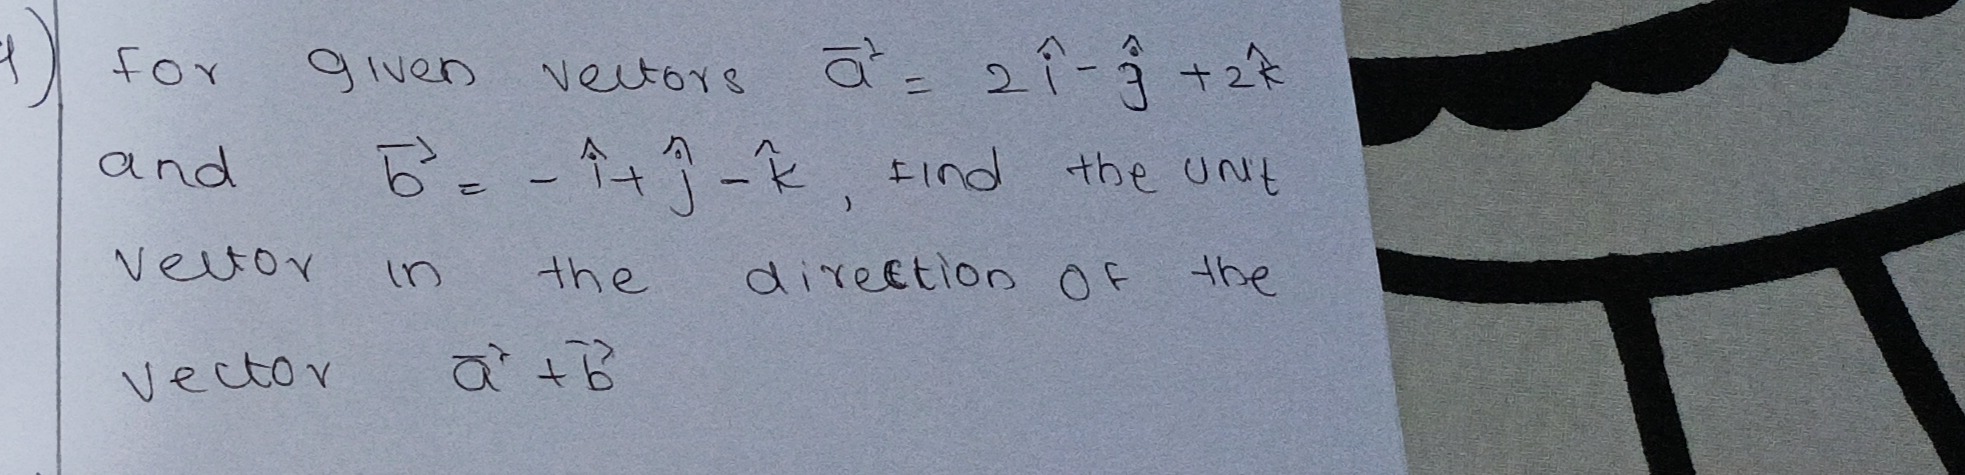 1) For given vectors a⃗ = 2î - ĵ + 2k̂
and b⃗ = - î + ĵ - k̂, find the unit
vector in the direction of the
vector a⃗ + b⃗